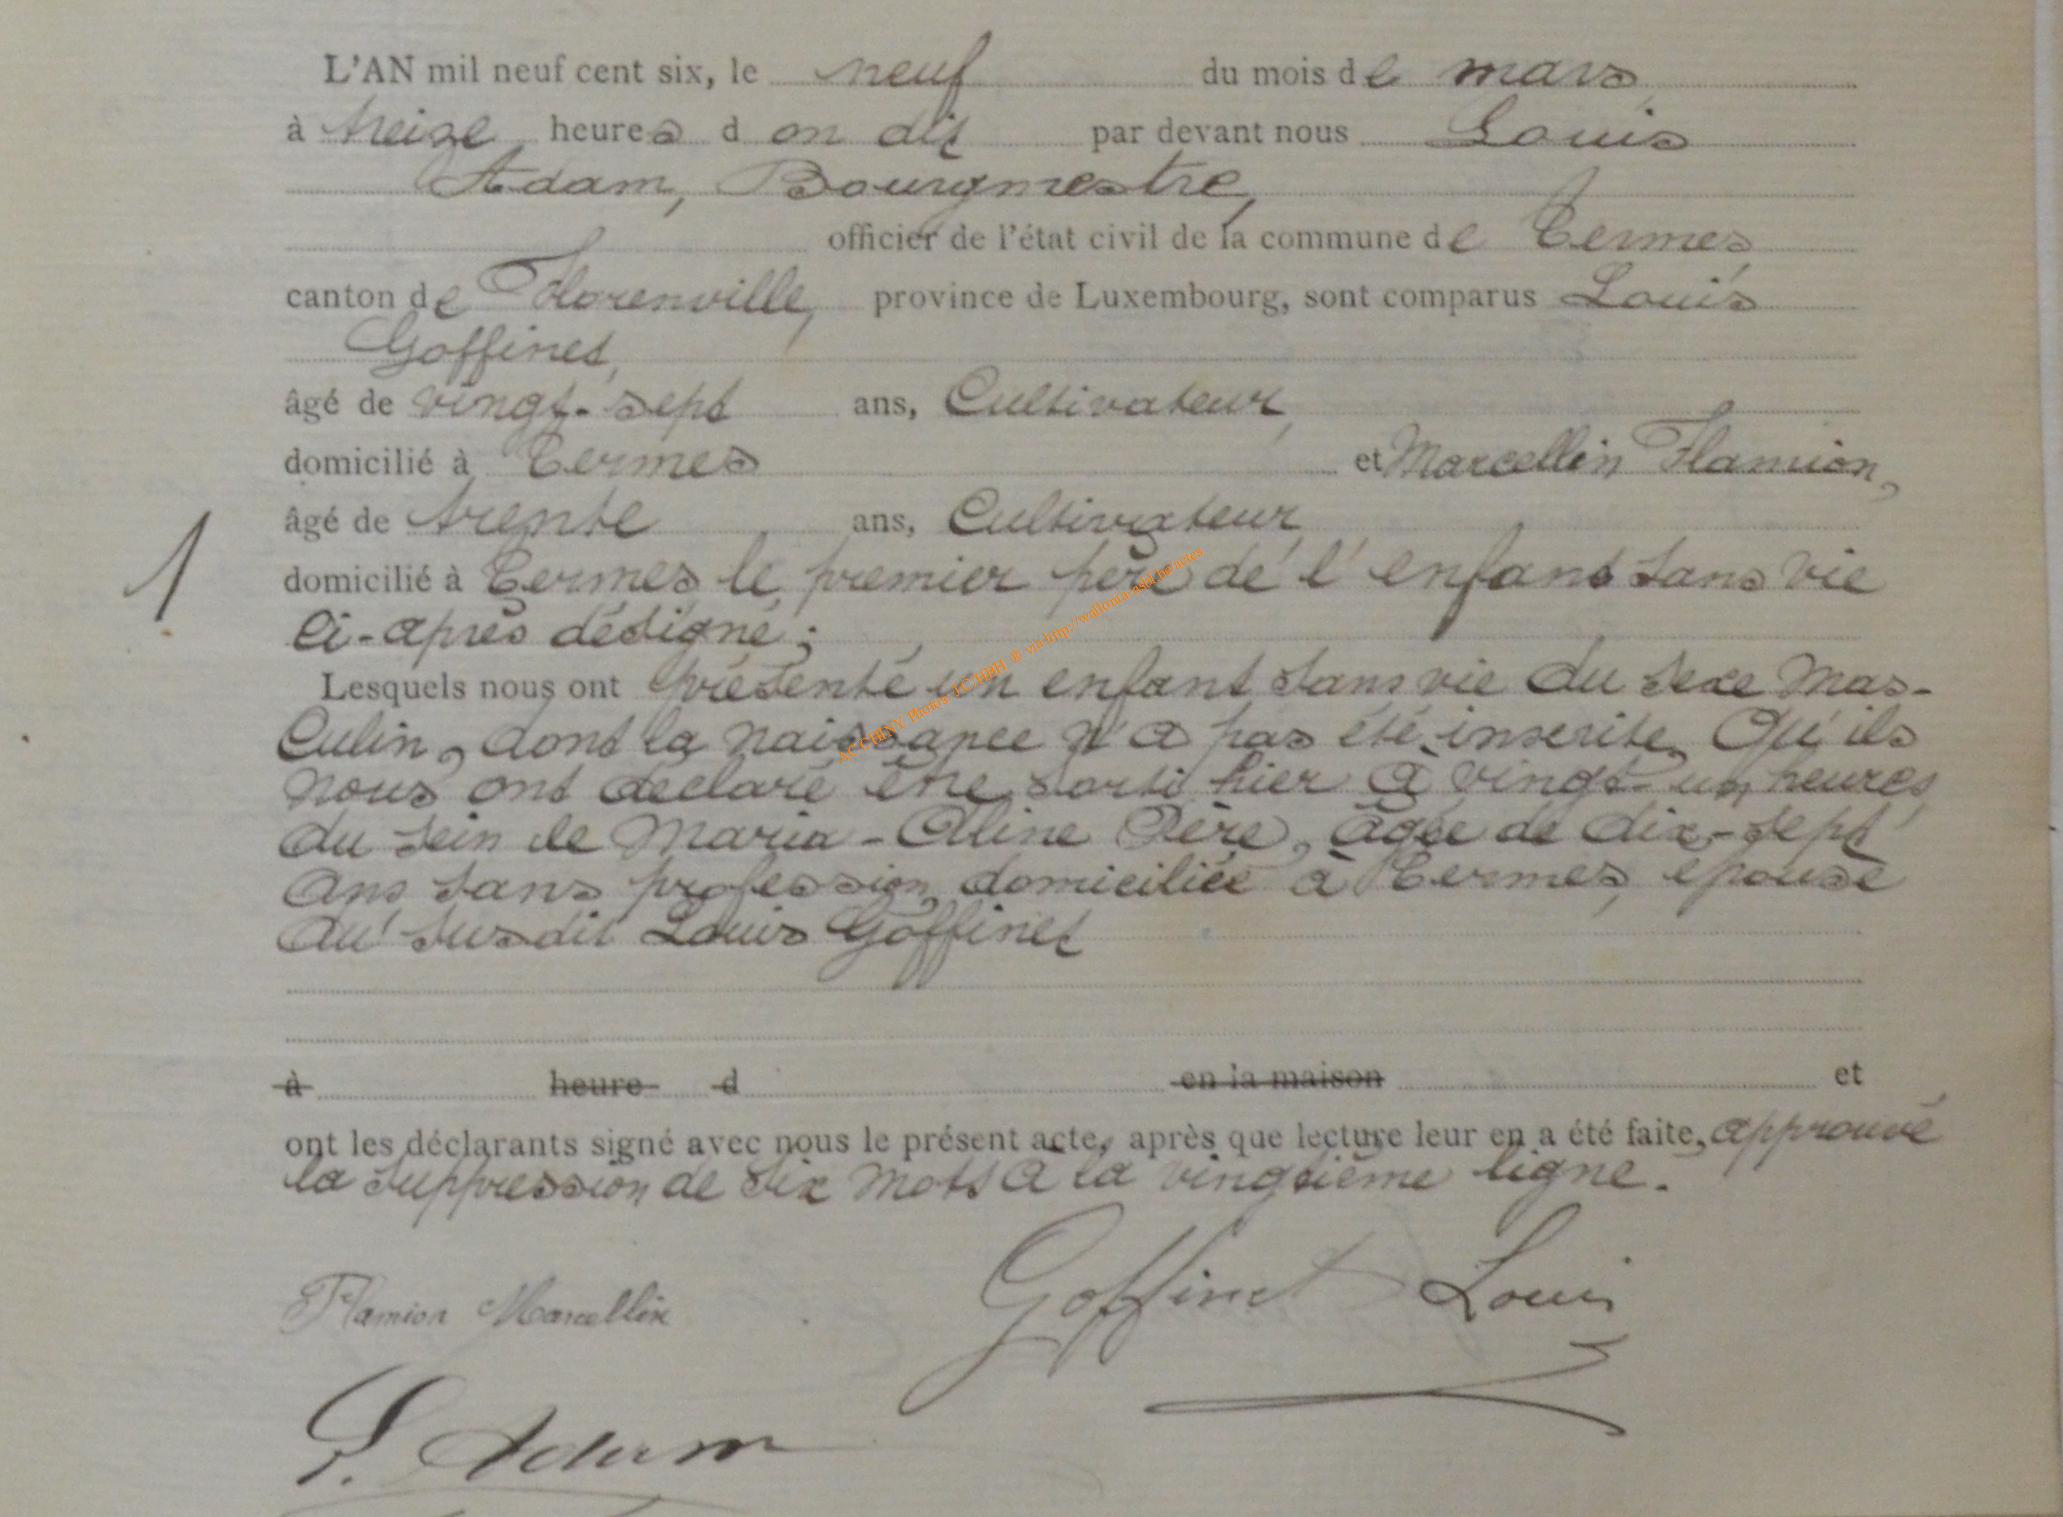 L'AN mil neuf cent six, le neuf du mois de mars
à treize heures d on dit par devant nous Louis
Adam, Bourgmestre,
officier de l'état civil de la commune de Termes,
canton de Florenville, province de Luxembourg, sont comparus Louis
Goffinet,
âgé de vingt-sept ans, Cultivateur,
domicilié à Termes et Marcellin Flamion,
âgé de trente ans, Cultivateur,
1
domicilié à Termes, le premier père de l'enfant sans vie
ci-après désigné;
Lesquels nous ont présenté un enfant sans vie du sexe mas-
culin, dont la naissance n'a pas été inscrite, Qu'ils
nous ont déclaré être sorti hier à vingt-un heures,
du sein de Maria-Aline Père, âgée de dix-sept
ans sans profession, domiciliée à Termes, épouse
du susdit Louis Goffinet
à heure d en la maison et
ont les déclarants signé avec nous le présent acte, après que lecture leur en a été faite, approuvé
la suppression de six mots à la vingtième ligne.
Flamion Marcellin Goffinet Louis
L. Adam
ACCHINY Photos J.C HBH ® via http://wallonia-asbl.be/actes